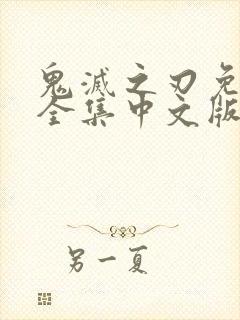 鬼滅之刃免
全集中文版
另一夏